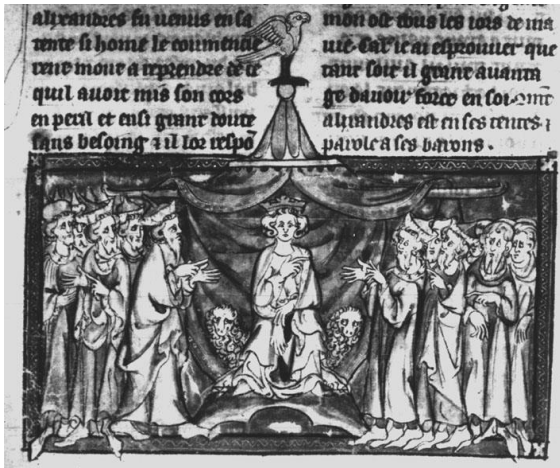 alixandres fu venus en sa
tente si home le coumencie
rent mout a reprendre de ce
quil avoit mis son cors
en peril et ensi grant doute
sans besoing ⁊ il lor respō
mon ost tous les iors de ma
vie. Car ie ai esprouver que
tant soit il grant avanta
ge davoir force en soi.
alixandres est en ses tentes ⁊
parole a ses barons.